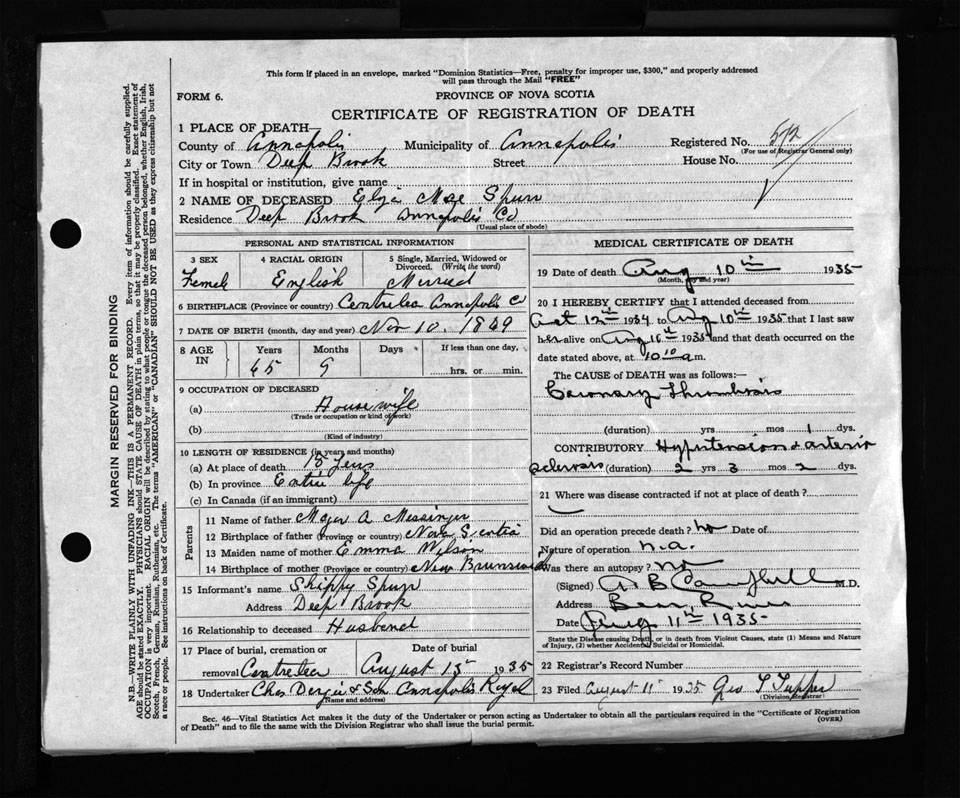 This form if placed in an envelope, marked "Dominion Statistics—Free, penalty for improper use, $300," and properly addressed
will pass through the Mail "FREE"
FORM 6.
PROVINCE OF NOVA SCOTIA
CERTIFICATE OF REGISTRATION OF DEATH
1 PLACE OF DEATH—
County of Annapolis Municipality of Annapolis Registered No. 572
(For use of Registrar General only)
City or Town Deep Brook Street House No.
If in hospital or institution, give name
2 NAME OF DECEASED Eliza Mae Spurr
Residence Deep Brook Annapolis Co
(Usual place of abode)
PERSONAL AND STATISTICAL INFORMATION
3 SEX 4 RACIAL ORIGIN 5 Single, Married, Widowed or Divorced. (Write the word)
Femel English Married
6 BIRTHPLACE (Province or country) Centrelea Annapolis C
7 DATE OF BIRTH (month, day and year) Nov 10. 1869
8 AGE IN Years Months Days If less than one day,
65 9 hrs. or min.
9 OCCUPATION OF DECEASED
(a) House wife
(Trade or occupation or kind of work)
(b)
(Kind of industry)
10 LENGTH OF RESIDENCE (in years and months)
(a) At place of death 15 Years
(b) In province Entire life
(c) In Canada (if an immigrant)
Parents
11 Name of father Major A Messinger
12 Birthplace of father (Province or country) Nova Scotia
13 Maiden name of mother Emma Wilson
14 Birthplace of mother (Province or country) New Brunswick
15 Informant's name Skippy Spurr
Address Deep Brook
16 Relationship to deceased Husbend
17 Place of burial, cremation or removal Date of burial
Centrelea August 13 1935
18 Undertaker Chas Dargie & Son Annapolis Royal
(Name and address)
MEDICAL CERTIFICATE OF DEATH
19 Date of death Aug 10th 1935
(Month, day and year)
20 I HEREBY CERTIFY that I attended deceased from
Oct 12th 1934 to Aug 10th 1935 that I last saw
her alive on Aug 10th 1935 and that death occurred on the
date stated above, at 10 10 a m.
The CAUSE of DEATH was as follows:—
Coronary Thrombosis
(duration) yrs mos 1 dys.
CONTRIBUTORY Hypertension & arterio
sclerosis (duration) 2 yrs 3 mos 2 dys.
21 Where was disease contracted if not at place of death?
Did an operation precede death? no Date of
Nature of operation n.a.
Was there an autopsy? no
(Signed) A B Campbell M.D.
Address Bear River
Date Aug 11th 1935
State the Disease causing Death, or in death from Violent Causes, state (1) Means and Nature
of Injury, (2) whether Accidental, Suicidal or Homicidal.
22 Registrar's Record Number
23 Filed August 11 1935 Geo T Tupper
(Division Registrar)
Sec. 46—Vital Statistics Act makes it the duty of the Undertaker or person acting as Undertaker to obtain all the particulars required in the "Certificate of Registration
of Death" and to file the same with the Division Registrar who shall issue the burial permit. (OVER)
MARGIN RESERVED FOR BINDING
N.B.—WRITE PLAINLY WITH UNFADING INK—THIS IS A PERMANENT RECORD. Every item of information should be carefully supplied.
AGE should be stated EXACTLY. PHYSICIANS should STATE CAUSE OF DEATH in plain terms, so that it may be properly classified. Exact statement of
OCCUPATION is very important. RACIAL ORIGIN will be described by stating to what people or tongue the deceased person belonged, whether English, Irish,
Scotch, French, German, Russian, Ruthenian, etc. The terms "AMERICAN" or "CANADIAN" SHOULD NOT BE USED as they express citizenship but not
a race or people. See instructions on back of Certificate.